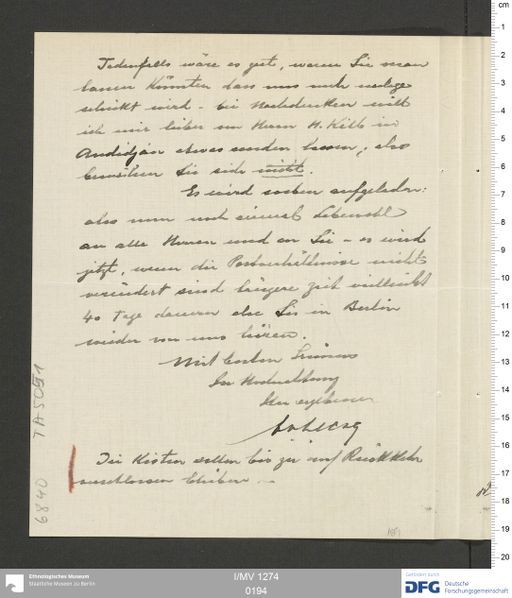 Jedenfalls wäre es gut, wenn Sie man
könnten dass uns mehr
schickt wird – bei Nachdenken will
ich mir lieber von Herrn H. Kilb in
Andidján etwas senden lassen, also
bemühen Sie sich nicht.
Es wird soeben aufgeladen:
also nun noch einmal Lebewohl
an alle Herren und an Sie – es wird
jetzt, wenn die Postverhältnisse nicht
verändert sind längere Zeit vielleicht
40 Tage dauern ehe Sie in Berlin
wieder von uns hören.
Mit besten Grüssen
In Hochachtung
Ihr ergebener
Die Kisten sollen bis zu m/ Rückkehr
verschlossen bleiben. –
6840
TA 5051
cm
0
1
2
3
4
5
6
7
8
9
10
11
12
13
14
15
16
17
18
19
20
Ethnologisches Museum
Staatliche Museen zu Berlin
I/MV 1274
0194
Gefördert durch
DFG
Deutsche
Forschungsgemeinschaft